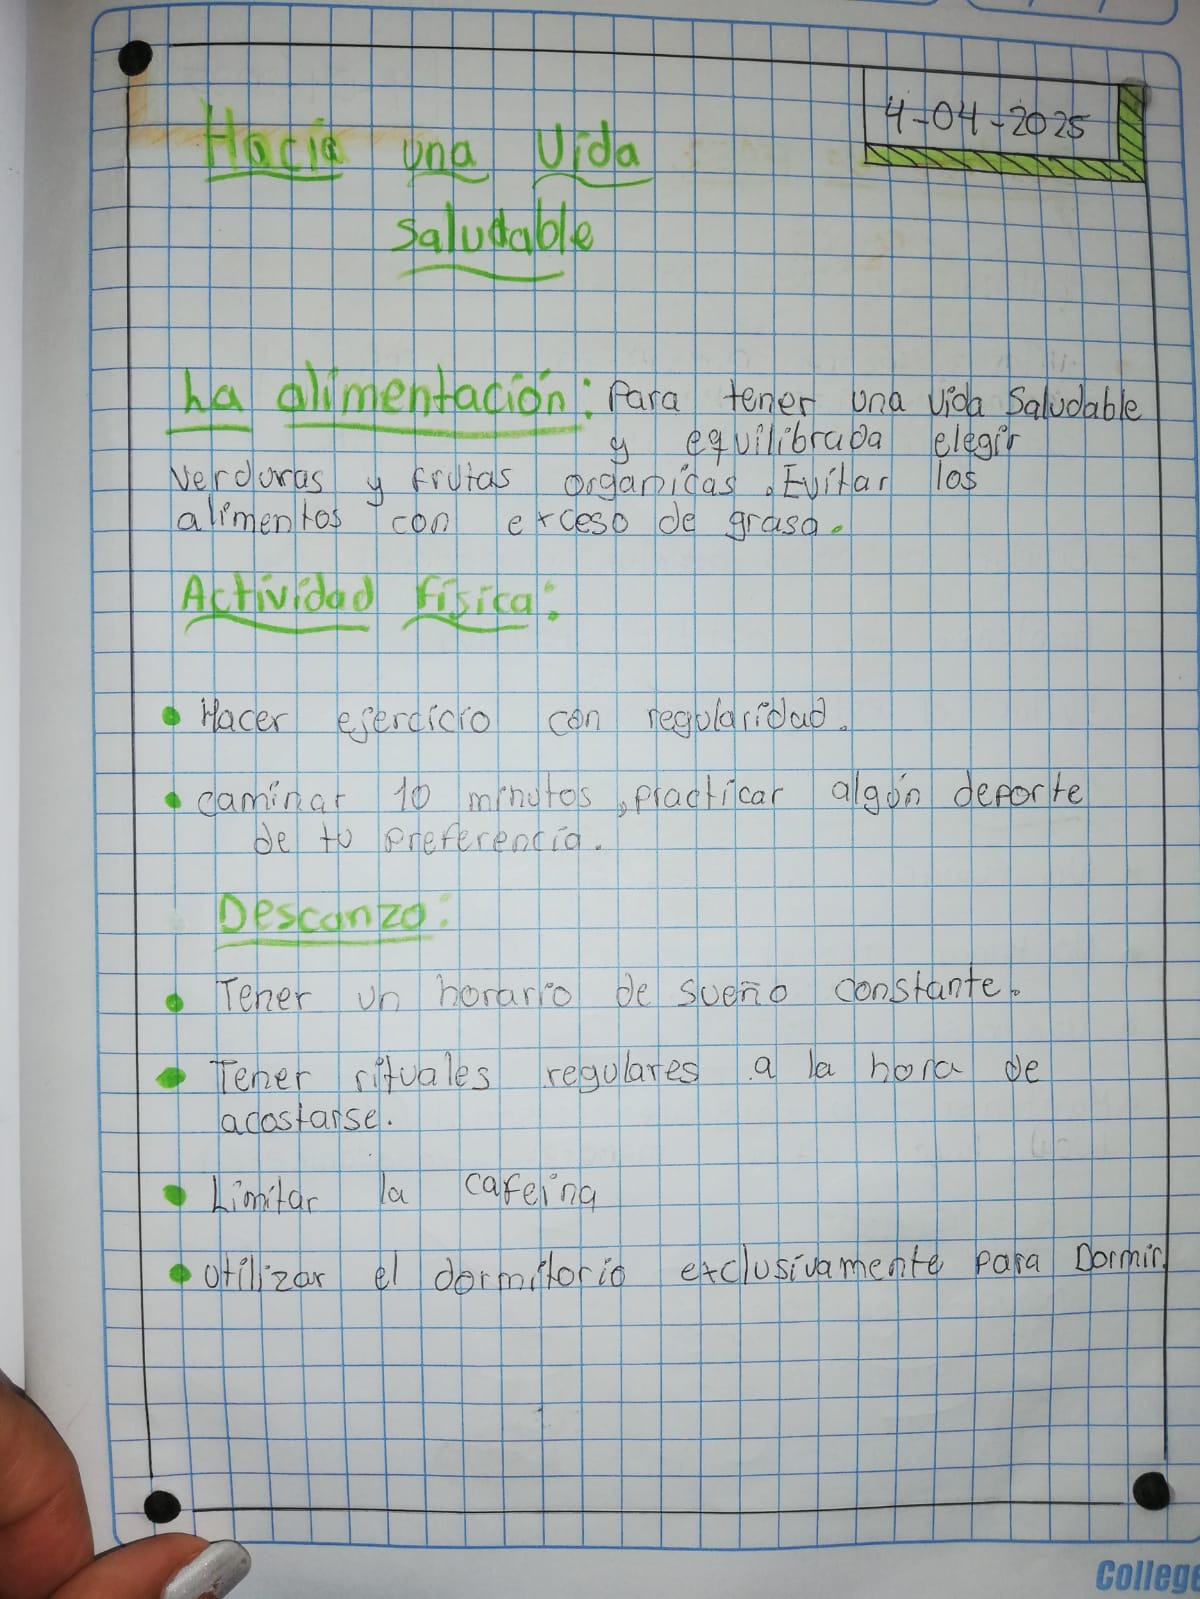 4-04-2025
Hacia una Vida
saludable
La alimentación: Para tener una vida Saludable
y equilibrada elegir
verduras y frutas organicas. Evitar los
alimentos con exceso de grasa.
Actividad física:
• Hacer ejercicio con regularidad.
• caminar 10 minutos, practicar algún deporte
de tu preferencia.
Descanzo:
• Tener un horario de sueño constante.
• Tener rituales regulares a la hora de
acostarse.
• Limitar la cafeina
• Utilizar el dormitorio exclusivamente para Dormir.
College